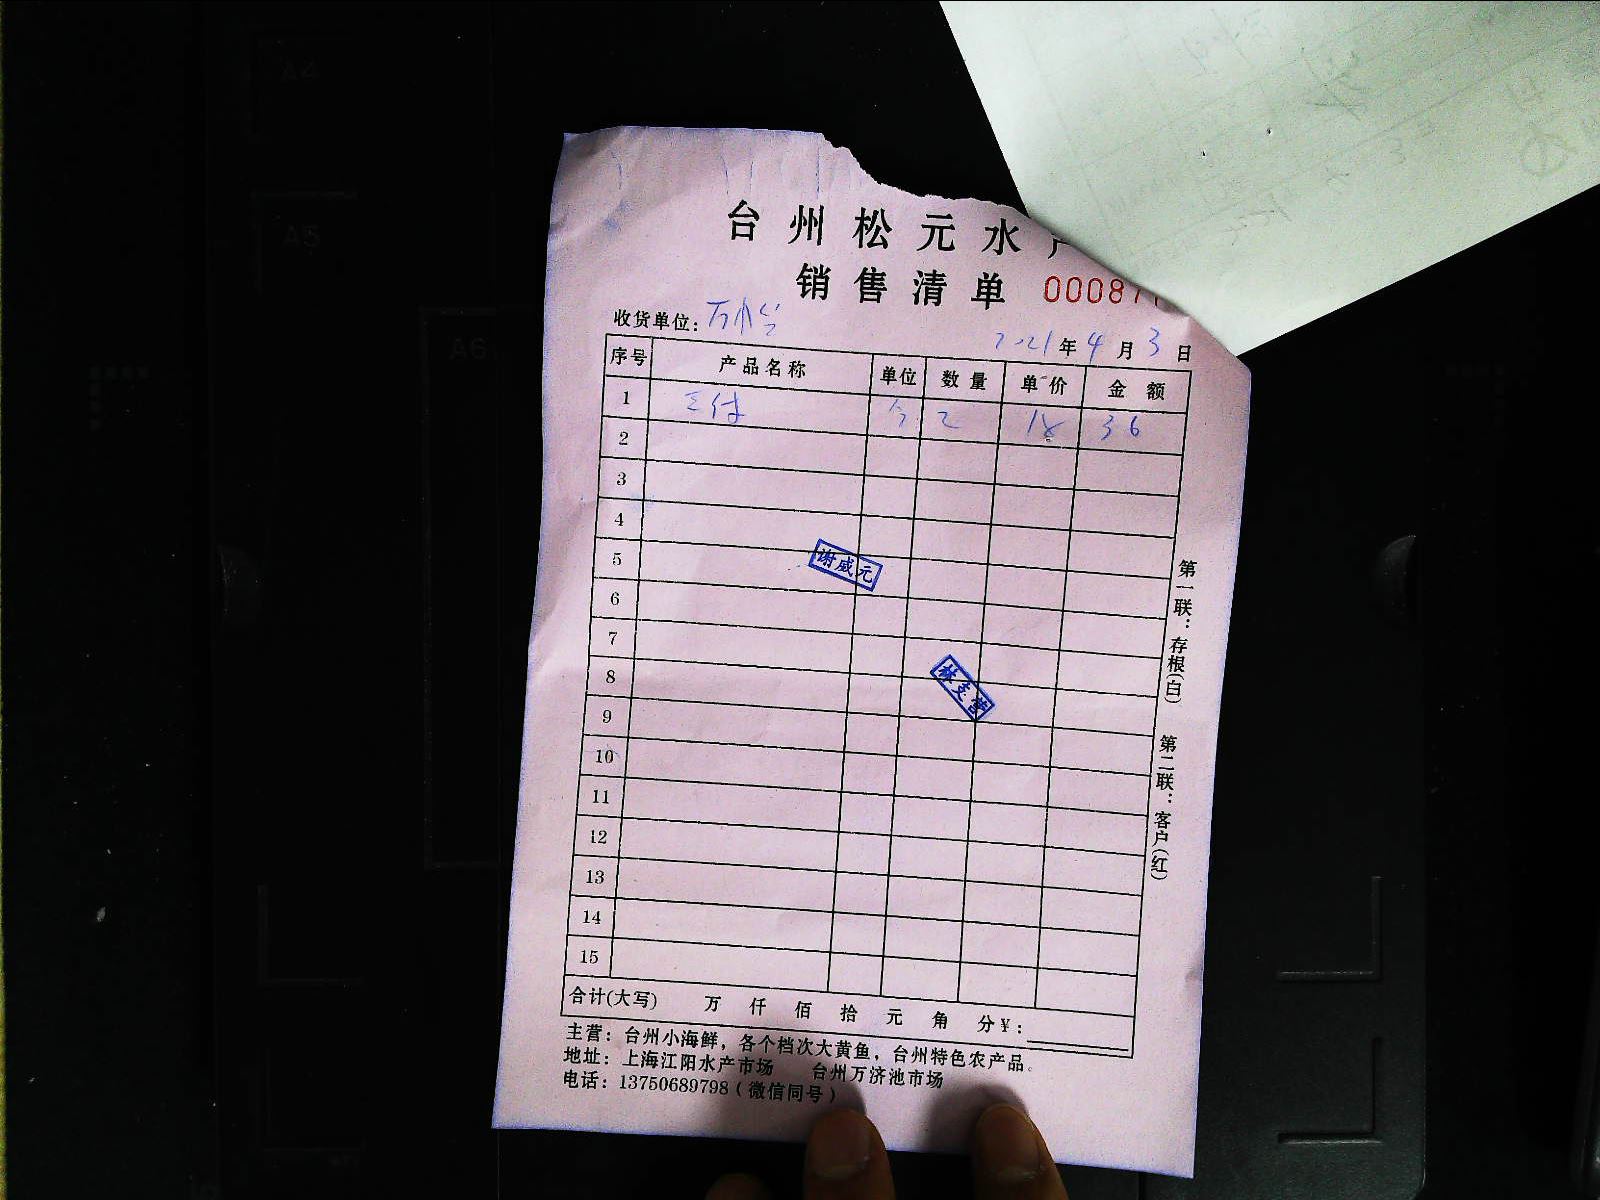 台州松元水
销售清单 00087
收货单位:
2021年4月3日
序号 产品名称 单位 数量 单价 金额
1 2 18 36
2
3
4
5
谢威元
6
7
8
9
10
11
12
13
14
15
合计(大写) 万 仟 佰 拾 元 角 分¥:
主营: 台州小海鲜, 各个档次大黄鱼, 台州特色农产品。
地址: 上海江阳水产市场 台州万济池市场
电话: 13750689798 (微信同号)
第一联: 存根(白) 第二联: 客户(红)
A4
A5
A6